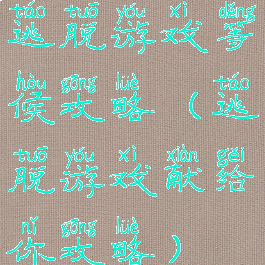 táo tuō yóu xì děng
逃脱游戏等
hòu gōng lüè táo
候攻略(逃
tuō yóu xì xiàn gěi
脱游戏献给
nǐ gōng lüè
你攻略)